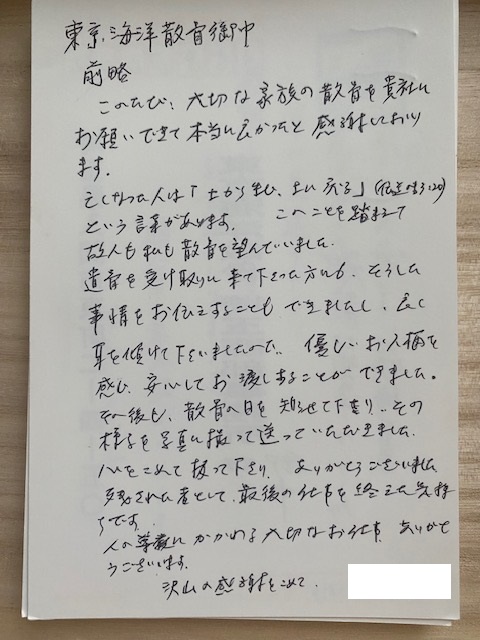 東京海洋散骨御中
前略
このたび、大切な家族の散骨を貴社に
お願いできて本当に良かったと感謝しており
ます。
亡くなった人は「土から生じ、土に戻る」(伝道の書3:20)
という言葉があります。 このことを踏まえて
故人も私も散骨を望んでいました。
遺骨を受け取りに来て下さった方にも、そうした
事情をお伝えすることもできましたし、良く
耳を傾けて下さいましたので、優しいお人柄を
感じ、安心してお渡しすることができました。
その後も、散骨の日を知らせて下さり、その
様子を写真に撮って送っていただきました。
心をこめて扱って下さり、ありがとうございました
残された者として、最後の仕事を終えた気持
ちです。
人の尊厳にかかわる大切なお仕事、ありがと
うございます。
沢山の感謝をこめて。